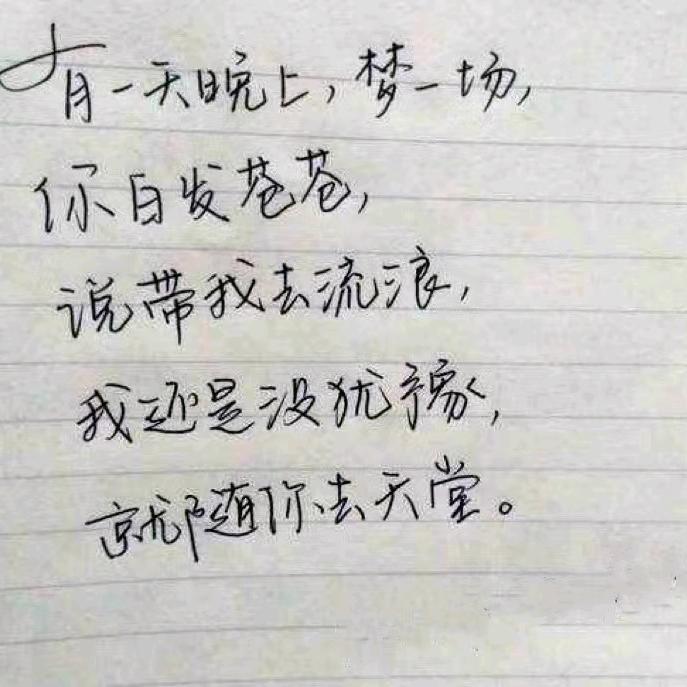 有一天晚上,梦一场,
你白发苍苍,
说带我去流浪,
我还是没犹豫,
就随你去天堂。